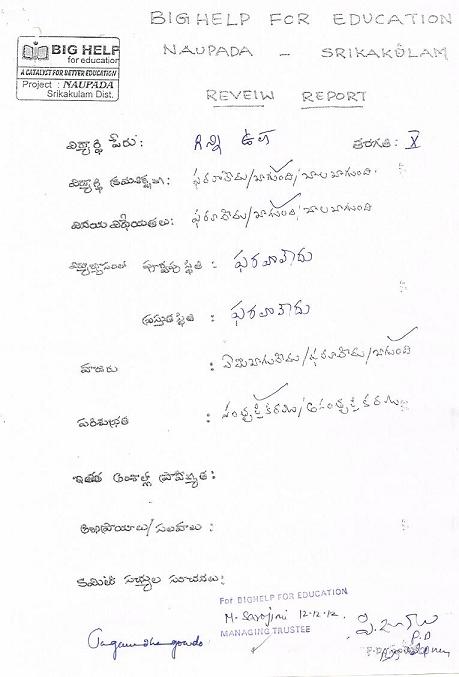 BIGHELP FOR EDUCATION
NAUPADA - SRIKAKULAM
BIG HELP
for education
A CATALYST FOR BETTER EDUCATION
Project : NAUPADA
Srikakulam Dist.
REVEIW REPORT
విద్యార్థి పేరు: ఉష తరగతి: X
విద్యార్థి క్రమశిక్షణ: ఫరవాలేదు/బాగుంది/చాలబాగుంది.
వినయ విధేయతలు: ఫరవాలేదు/బాగుంది/చాలబాగుంది
పూర్వపు స్థితి : ఫరవాలేదు
ప్రస్తుత స్థితి : ఫరవాలేదు
హాజరు : /ఫరవాలేదు/బాగుంది
పరిశుభ్రత : సంతృప్తికరము/అసంతృప్తికరము
ఇతర అంశాల్లో ప్రావీణ్యత:
అభిప్రాయాలు/సలహాలు :
కమిటీ సభ్యుల సూచనలు:
For BIGHELP FOR EDUCATION
M. Sarojini 12-12-12.
MANAGING TRUSTEE
P.D